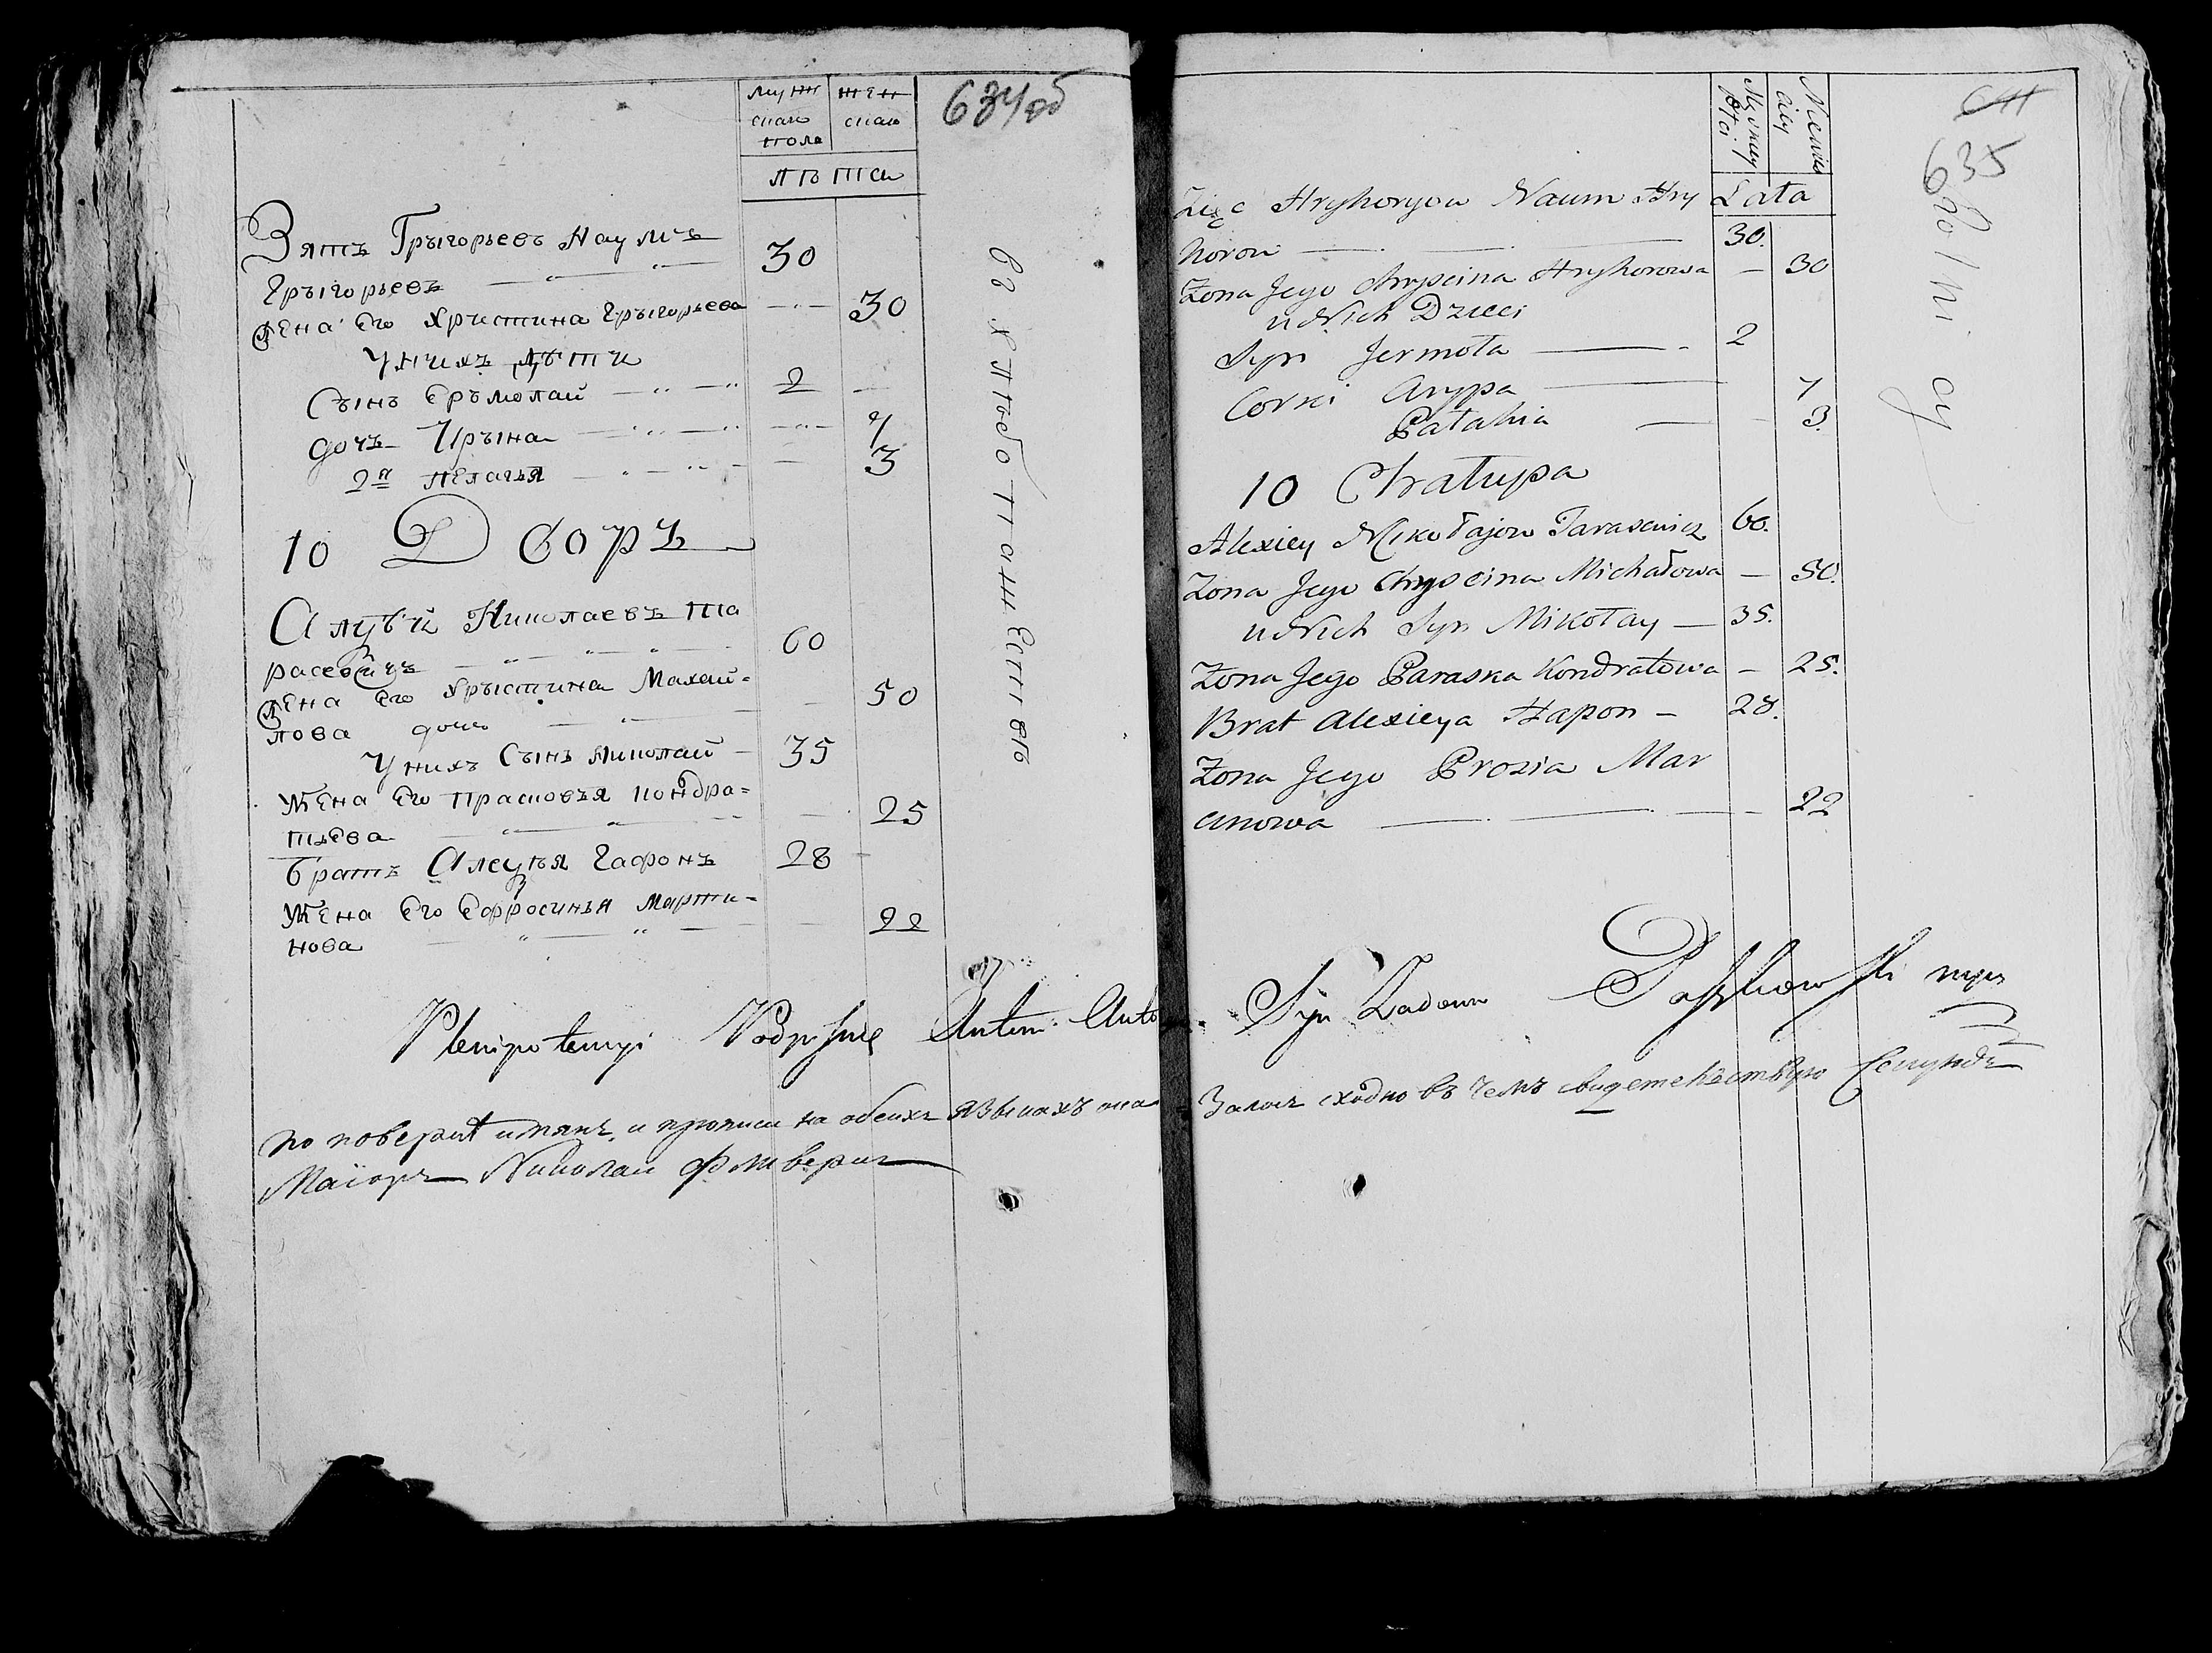 634об
муж
скаго
пола
жен
скаго
лѣта
Зять Грыгорьевъ Наумъ
Грыгорьевъ 30
Жена его Христина Грыгорьева 30
у нихъ дѣти
Сынъ Ермолай 2
дочь Ирына 7
2я Пелагья 3
10 Дворъ
Алексѣй Николаевъ Та
расевичъ 60
Жена его Хрыстина Михай=
лова дочь 50
у нихъ Сынъ Николай 35
Жена его Прасковья Кондра=
тьева 25
братъ Алексѣя Гафонъ 28
Жена его Ефросинья Марти=
нова 22
635
Męzkiey
Płci
Niewies
ciey
Lata
Zięc Hryhoryow Naum Hry
horow 30.
Zona Jego Chryscina Hryhorowa 30
u Nich Dzieci
Syn Jermoła 2
Corki Aryna 7
Pałahia 3.
10 Chałupa
Alexiey Mikołajow Tarasewicz 60.
Zona Jego Chryscina Michałowa 50.
u Nich Syn Mikołay 35.
Zona Jego Paraska Kondratowa 25.
Brat Alexieya Hapon 28.
Zona Jego Prozia Mar
cinowa 22
Plenipotencyi Podpisuję Antoni Anto Syn
по поверке имянъ и прописи на обеихъ языкахъ ока залось сходно въ чемъ свидетельствую Секундъ
Маіоръ Николай